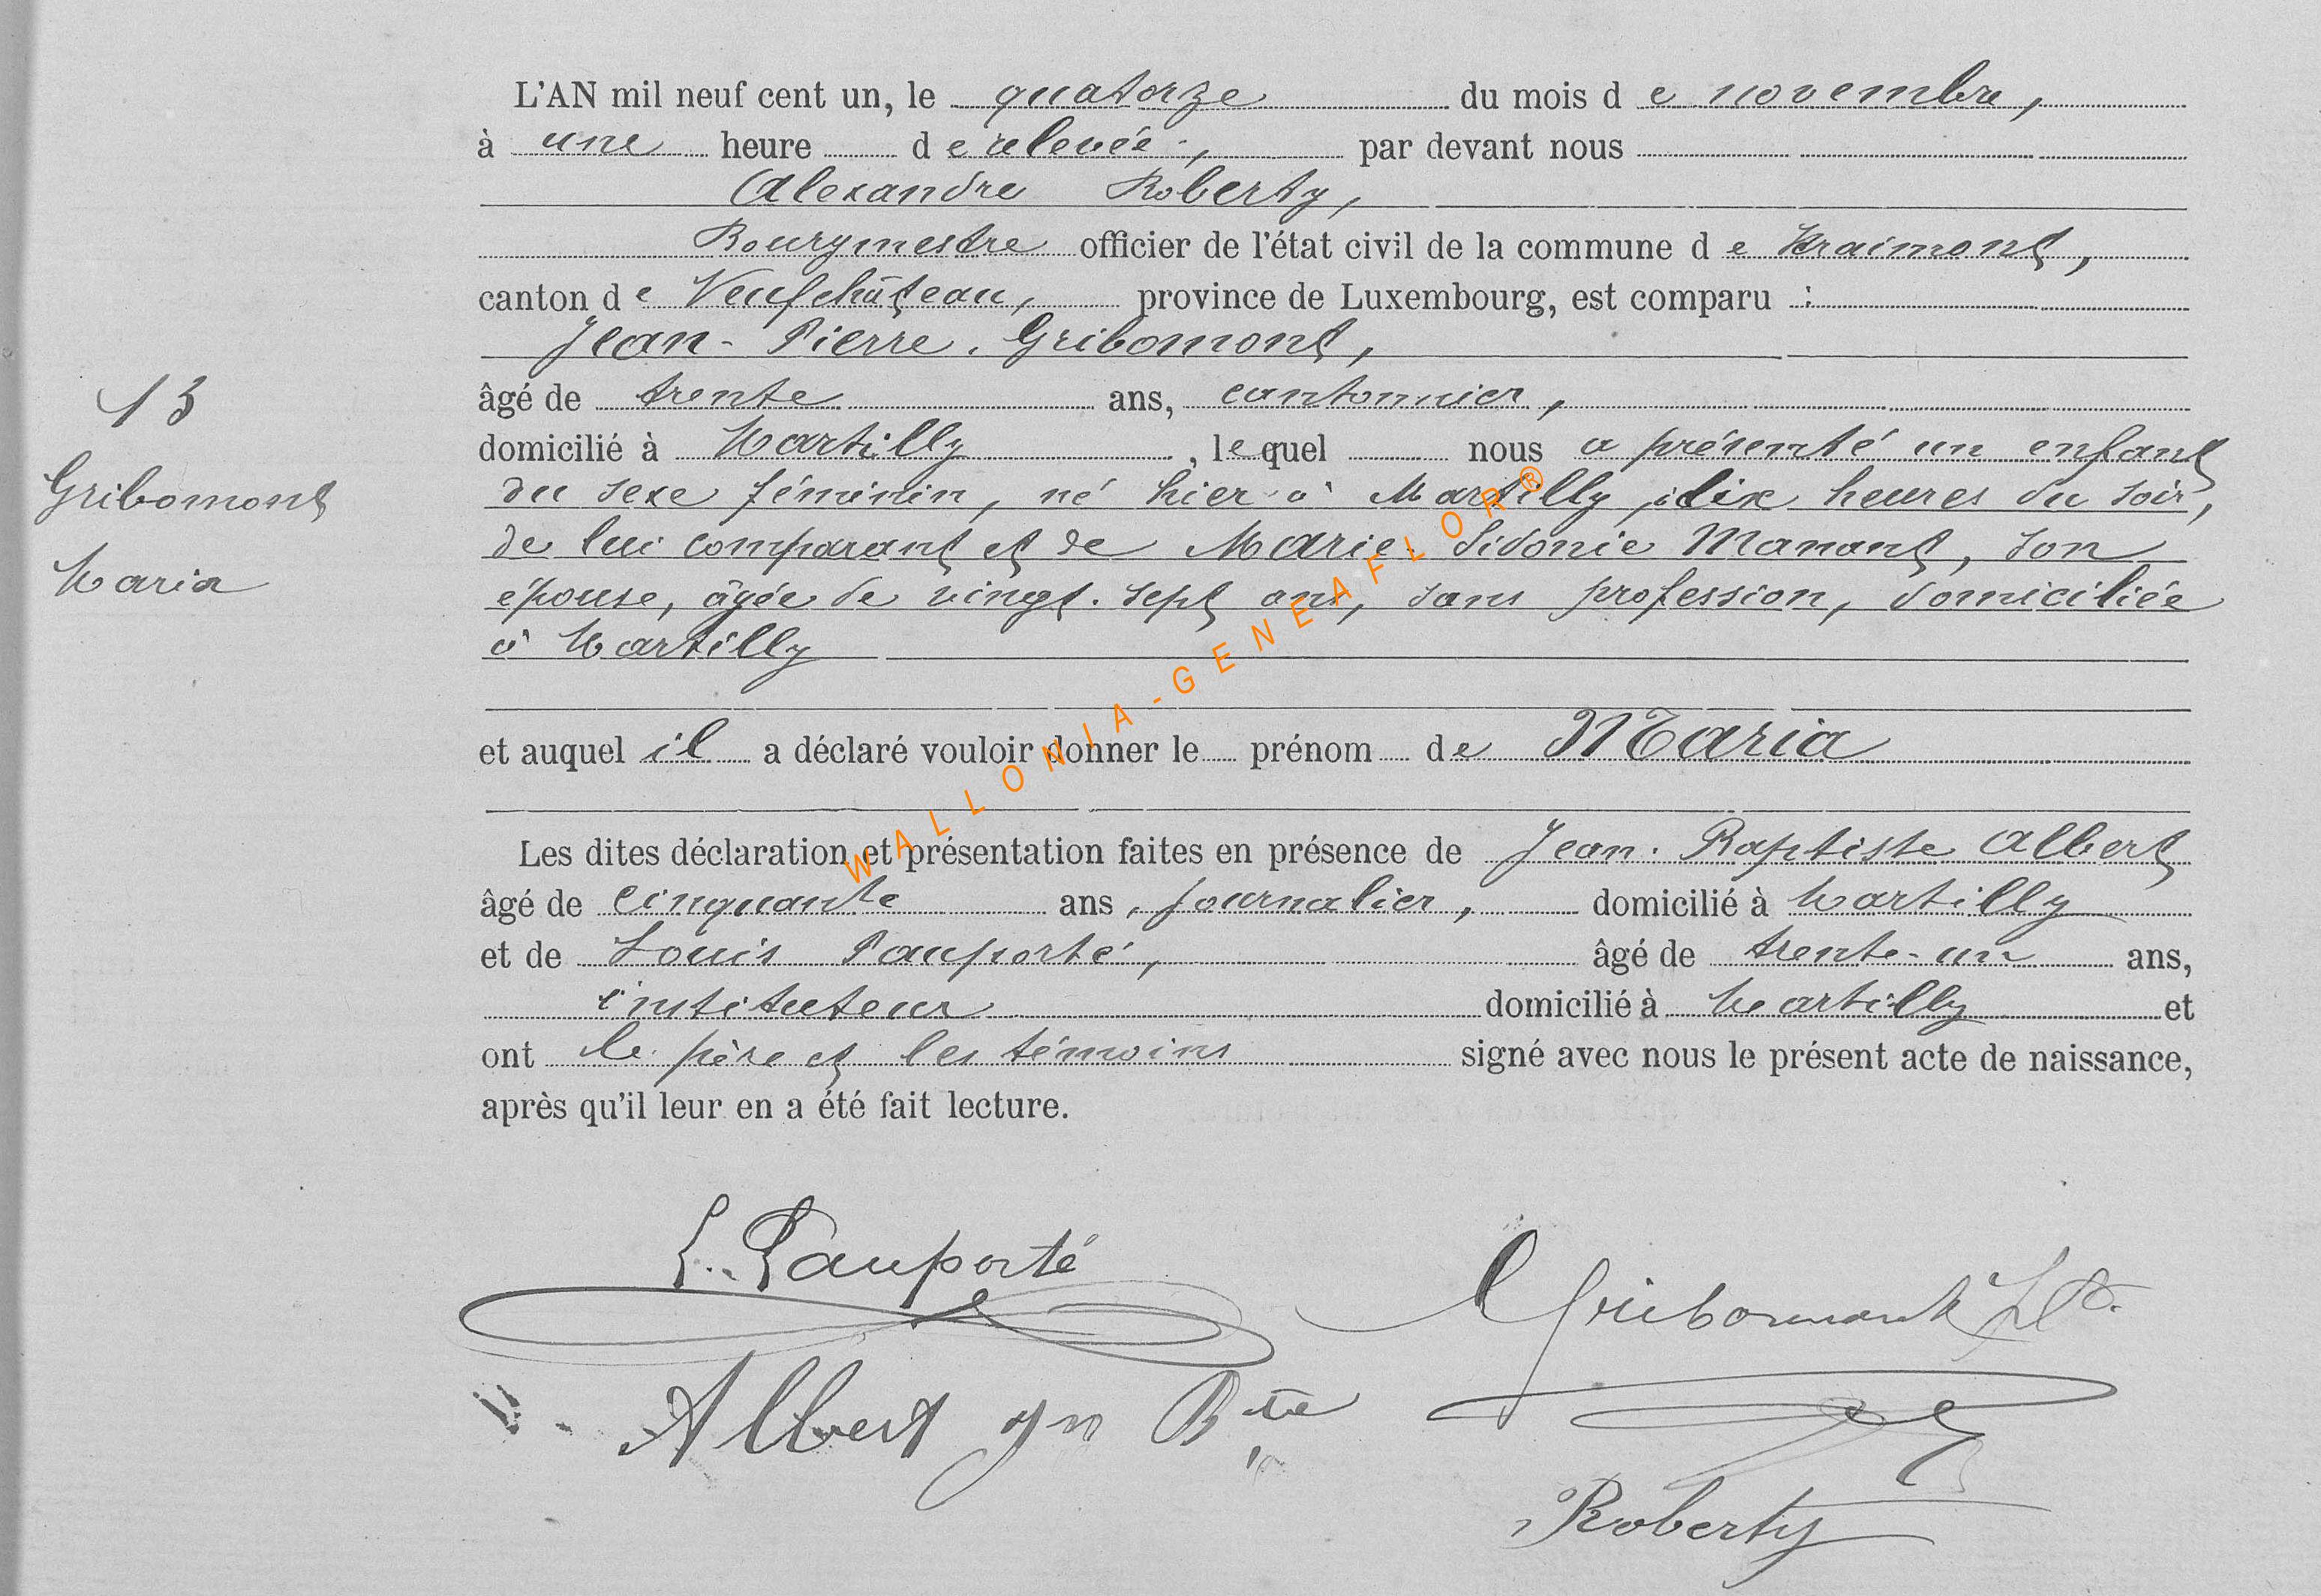 L'AN mil neuf cent un, le quatorze du mois de novembre,
à une heure de relevée, par devant nous
Alexandre Roberty,
Bourgmestre officier de l'état civil de la commune de Straimont,
canton de Neufchâteau, province de Luxembourg, est comparu :
Jean-Pierre Gribomont,
13
âgé de trente ans, cantonnier,
domicilié à Martilly, lequel nous a présenté un enfant
Gribomont
du sexe féminin, né hier à Martilly, dix heures du soir,
de lui comparant et de Marie-Sidonie Manant, son
Maria
épouse, âgée de vingt-sept ans, sans profession, domiciliée
à Martilly
et auquel il a déclaré vouloir donner le prénom de Maria
Les dites déclaration et présentation faites en présence de Jean-Baptiste Albert
âgé de cinquante ans, journalier, domicilié à Martilly
et de Louis Pauporté, âgé de trente-un ans,
instituteur domicilié à Martilly et
ont le père et les témoins signé avec nous le présent acte de naissance,
après qu'il leur en a été fait lecture.
L. Pauporté
Gribomont
Albert Jn Bte
Roberty
WALLONIA-GENEAFLOR®